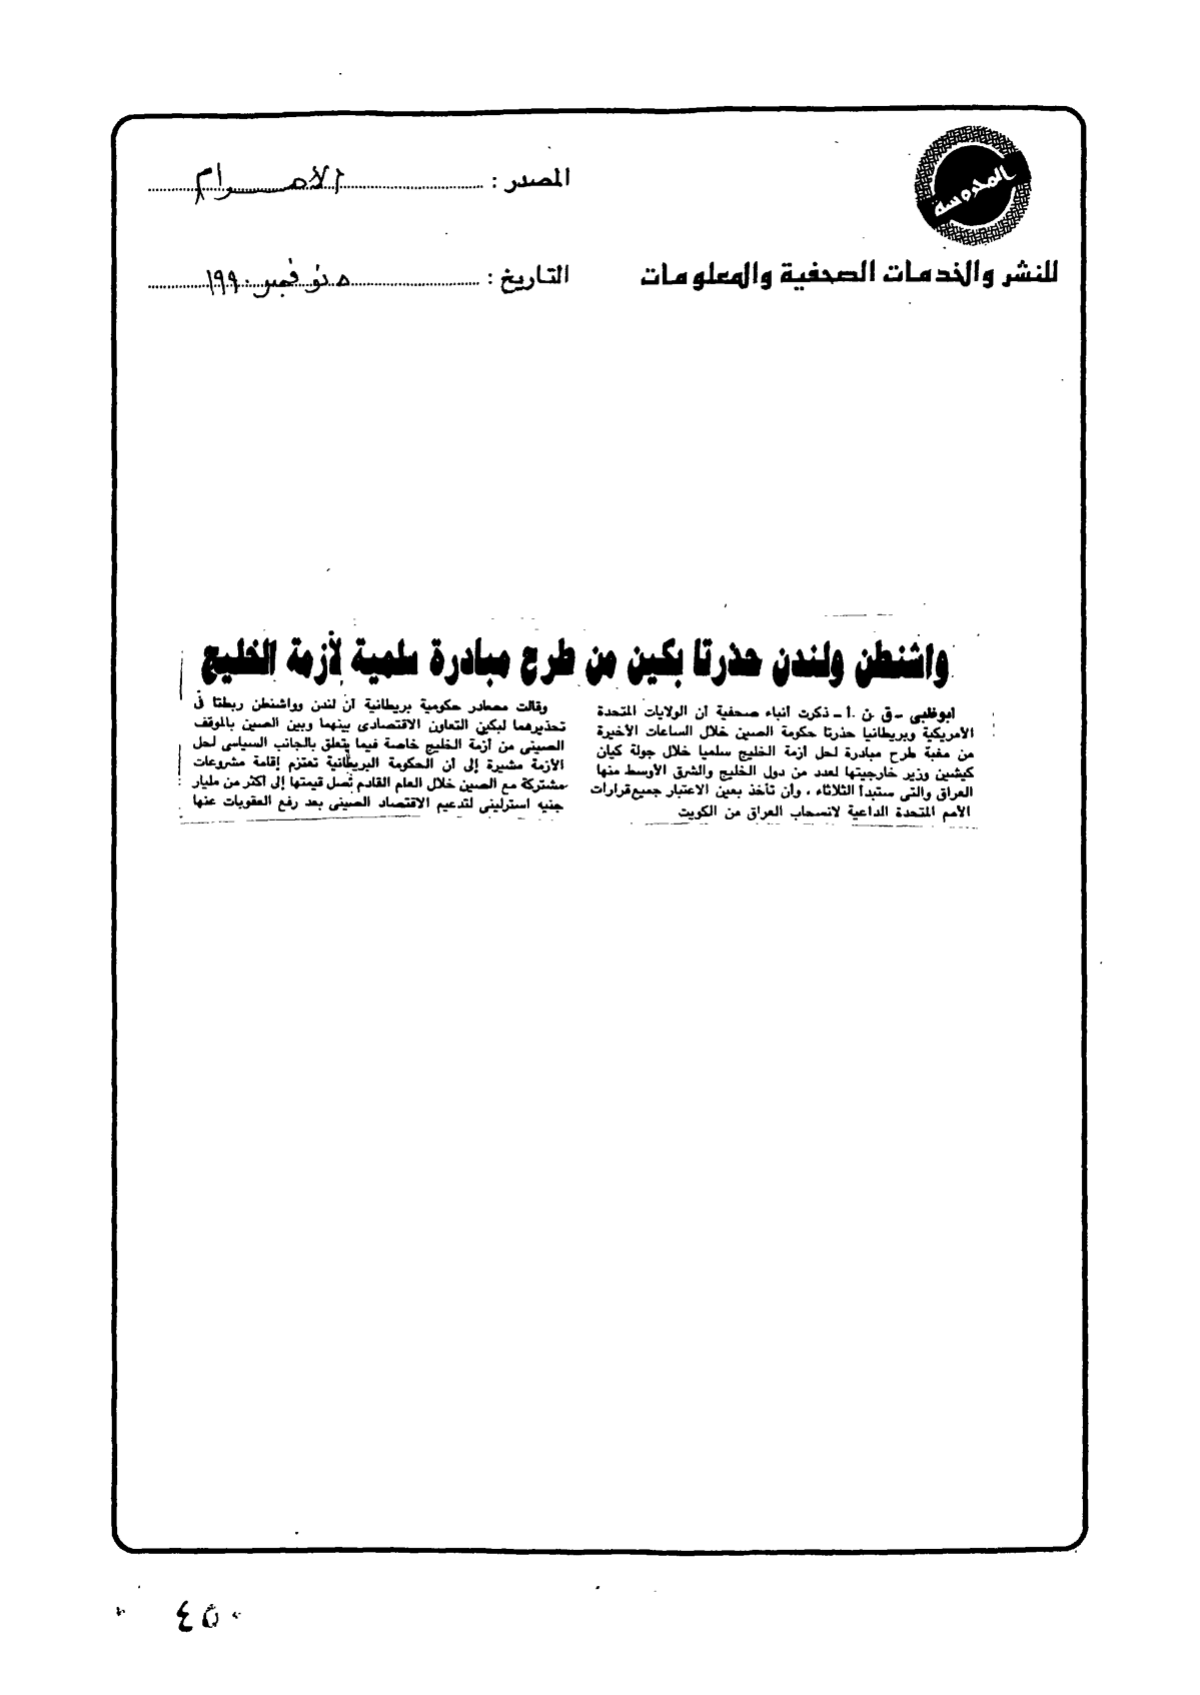 المحروسة
للنشر والخدمات الصحفية والمعلومات
المصدر : الأهرام
التاريخ : ٥ نوفمبر ١٩٩٠
واشنطن ولندن حذرتا بكين من طرح مبادرة سلمية لأزمة الخليج
ابوظبى - ق . ن . أ - ذكرت أنباء صحفية أن الولايات المتحدة
الأمريكية وبريطانيا حذرتا حكومة الصين خلال الساعات الأخيرة
من مغبة طرح مبادرة لحل أزمة الخليج سلميا خلال جولة كيان
كيشين وزير خارجيتها لعدد من دول الخليج والشرق الأوسط منها
العراق والتى ستبدأ الثلاثاء ، وأن تأخذ بعين الاعتبار جميع قرارات
الأمم المتحدة الداعية لانسحاب العراق من الكويت
وقالت مصادر حكومية بريطانية أن لندن وواشنطن ربطتا فى
تحذيرهما لبكين التعاون الاقتصادى بينهما وبين الصين بالموقف
الصينى من أزمة الخليج خاصة فيما يتعلق بالجانب السياسى لحل
الأزمة مشيرة إلى أن الحكومة البريطانية تعتزم إقامة مشروعات
مشتركة مع الصين خلال العام القادم تصل قيمتها إلى أكثر من مليار
جنيه استرلينى لتدعيم الاقتصاد الصينى بعد رفع العقوبات عنها
٤٥٠